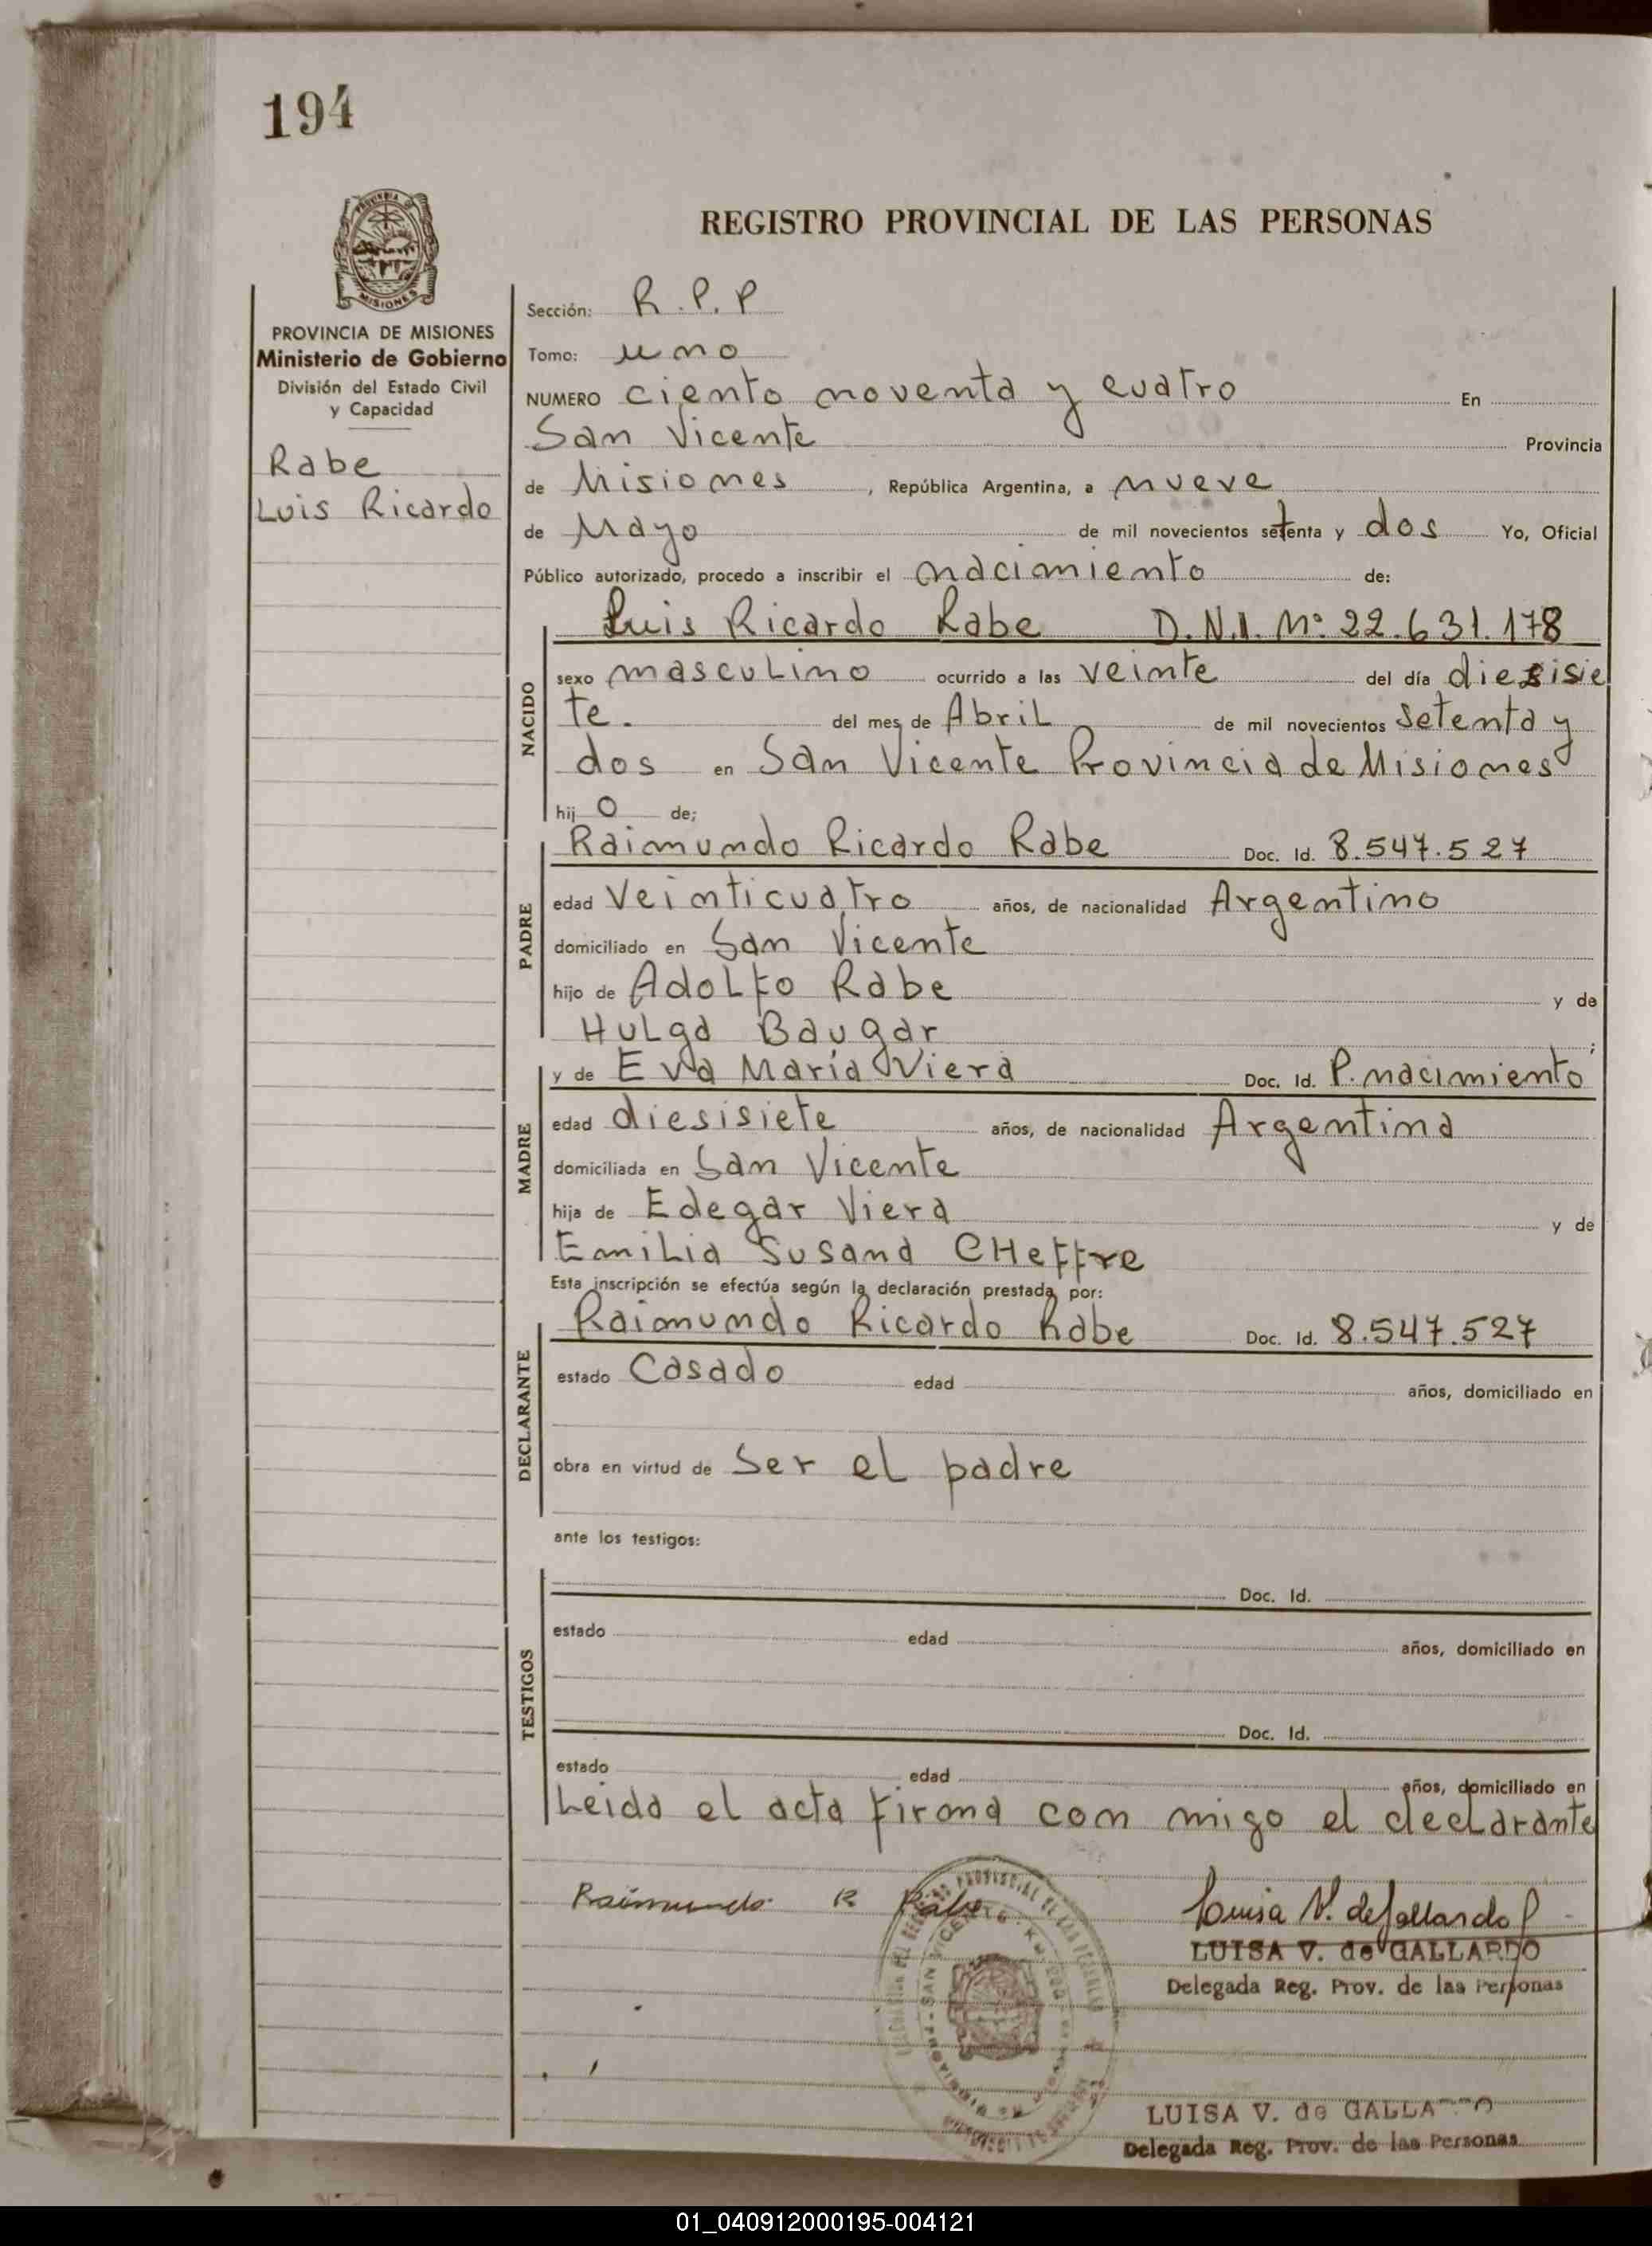 194
PROVINCIA DE MISIONES
Ministerio de Gobierno
División del Estado Civil
y Capacidad
Rabe
Luis Ricardo
REGISTRO PROVINCIAL DE LAS PERSONAS
Sección: R.P.P
Tomo: uno
NUMERO ciento noventa y cuatro En
San Vicente Provincia
de Misiones, República Argentina, a nueve
de Mayo de mil novecientos setenta y dos Yo, Oficial
Público autorizado, procedo a inscribir el nacimiento de:
NACIDO
Luis Ricardo Rabe D.N.I. Nº 22.631.178
sexo masculino ocurrido a las veinte del día diesisie
te. del mes de Abril de mil novecientos setenta y
dos en San Vicente Provincia de Misiones
hijo de;
PADRE
Raimundo Ricardo Rabe Doc. Id. 8.547.527
edad veinticuatro años, de nacionalidad Argentino
domiciliado en San Vicente
hijo de Adolfo Rabe y de
Hulga Baugar ;
MADRE
y de Eva María Viera Doc. Id. P. nacimiento
edad diesisiete años, de nacionalidad Argentina
domiciliada en San Vicente
hija de Edegar Viera y de
Emilia Susana CHeffre
Esta inscripción se efectúa según la declaración prestada por:
DECLARANTE
Raimundo Ricardo Rabe Doc. Id. 8.547.527
estado Casado edad años, domiciliado en
obra en virtud de ser el padre
ante los testigos:
TESTIGOS
Doc. Id.
estado edad años, domiciliado en
Doc. Id.
estado edad años, domiciliado en
Leida el acta firona con migo el declarante
Raimundo R Rabe
Luisa V. de Gallardo
LUISA V. de GALLARDO
Delegada Reg. Prov. de las Personas
SAN VICENTE
LUISA V. de GALLA
Delegada Reg. Prov. de las Personas
01_040912000195-004121